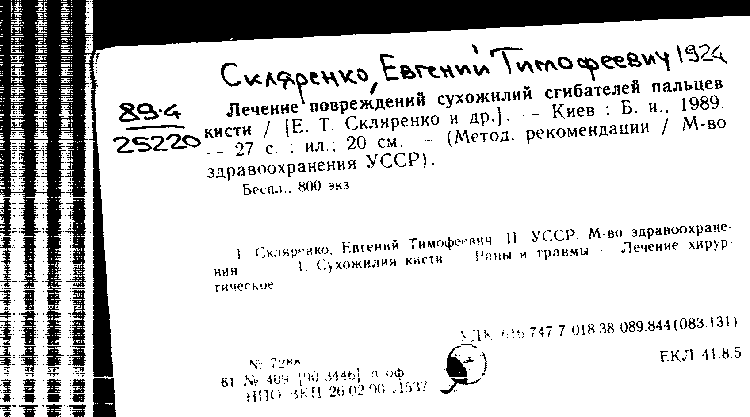 Скляренко, Евгений Тимофеевич 1924
89-4
25220
Лечение повреждений сухожилий сгибателей пальцев
кисти / [Е. Т. Скляренко и др.]. — Киев : Б. и., 1989.
— 27 с. : ил.; 20 см. — (Метод. рекомендации / М-во
здравоохранения УССР).
Беспл., 800 экз
1 Скляренко, Евгений Тимофеевич II УССР. М-во здравоохране-
ния 1. Сухожилия кисти Раны и травмы - Лечение хирур-
гическое
УДК 616 747 7-018 38 089.844(083.131)
ЕКЛ 41.8.5
№ 7288
81 № 409 [90 3446] п оф
НПО ВКП 26 02 90